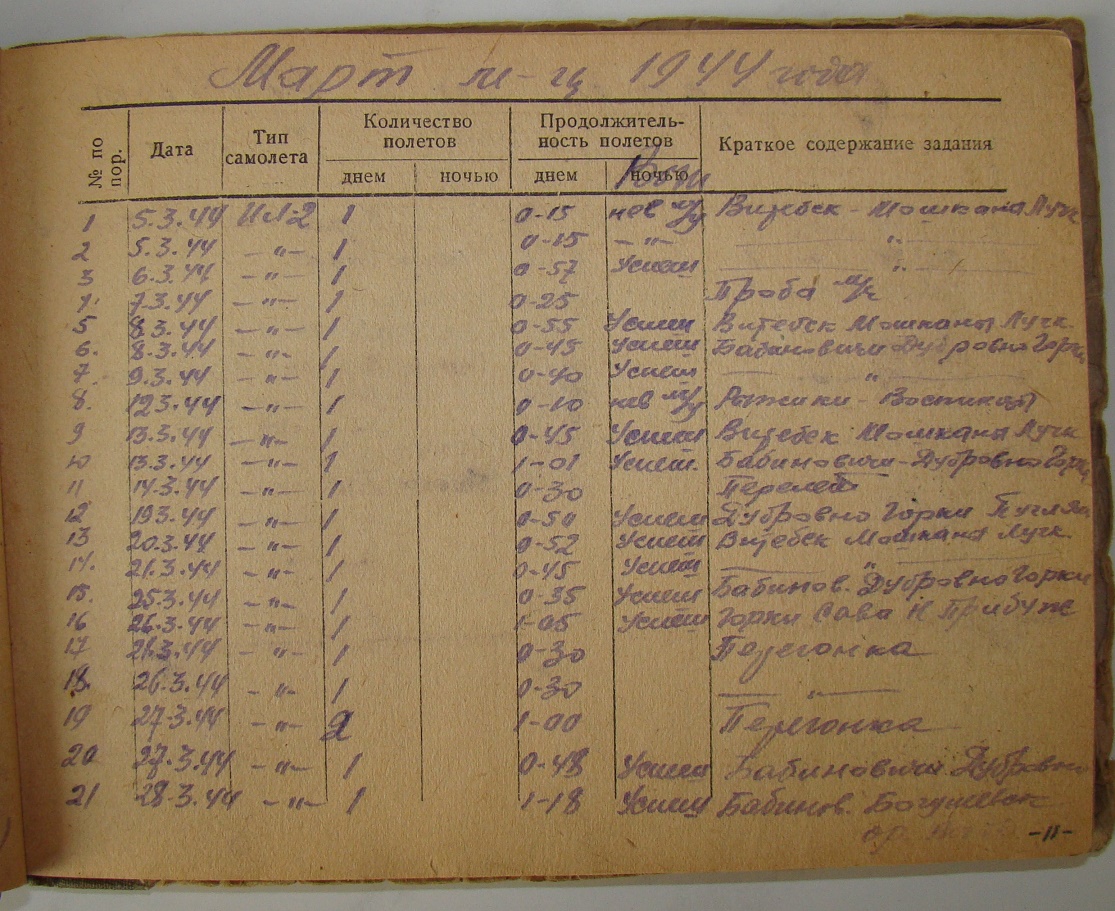 Март м-ц 1944 года
№ по пор. Дата Тип самолета Количество полетов Продолжитель-ность полетов Краткое содержание задания
днем ночью днем ночью
1 5.3.44 ИЛ-2 1 0-15 нев м/у Витебск - Мошканы Лучк
2 5.3.44 -"- 1 0-15 -"- "
3 6.3.44 -"- 1 0-57 Успеш "
4 7.3.44 -"- 1 0-25 Проба
5 8.3.44 -"- 1 0-55 Успеш Витебск Мошканы Лучк.
6. 8.3.44 -"- 1 0-45 Успеш Бабиновичи Дубровно Горки
7 9.3.44 -"- 1 0-40 Успеш "
8. 12.3.44 -"- 1 0-10 нев м/у
9 13.3.44 -"- 1 0-45 Успеш Витебск Мошканы Лучк
10 13.3.44 -"- 1 1-01 Успеш. Бабиновичи-Дубровно Горки
11 14.3.44 -"- 1 0-30 Перелет
12 19.3.44 -"- 1 0-50 Успеш Дубровно Горки
13 20.3.44 -"- 1 0-52 Успеш Витебск Мошканы Лучк.
14. 21.3.44 -"- 1 0-45 Успеш "
15. 25.3.44 -"- 1 0-35 Успеш Бабинов. Дубровно Горки
16 26.3.44 -"- 1 1-05 Успеш Горки Сава Н Прибуж
17 26.3.44 -"- 1 0-30 Перегонка
18. 26.3.44 -"- 1 0-30 -"-
19 27.3.44 -"- 2 1-00 Перегонка
20 27.3.44 -"- 1 0-48 Успеш Бабиновичи Дубровно
21 28.3.44 -"- 1 1-18 Успеш Бабинов. Богушевск
-11-